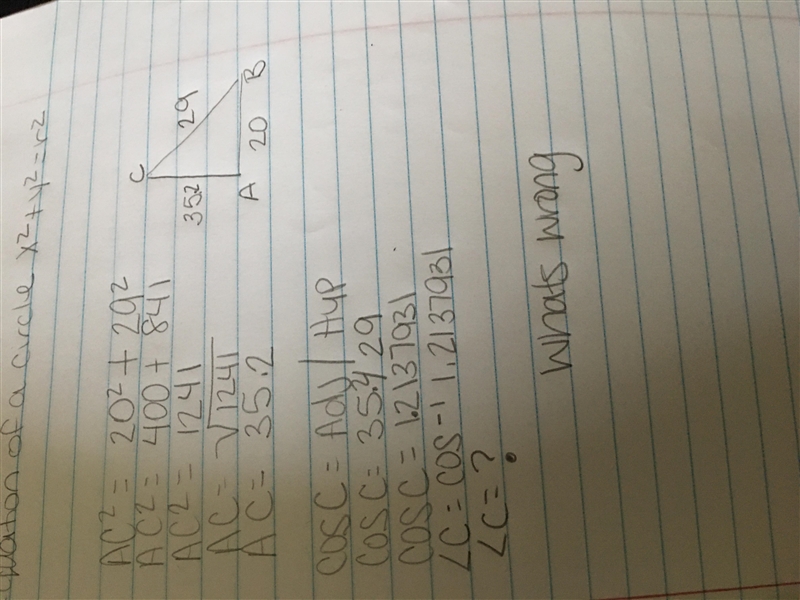 quation of a circle x²+y²=r²
AC² = 20² + 29²
AC² = 400 + 841
AC² = 1241
AC = √1241
AC = 35.2
C
35.2
29
A
20
B
COSC = Adj / Hyp
COSC = 35.2/29
COSC = 1.2137931
∠C = COS⁻¹ 1.2137931
∠C = ?
Whats wrong